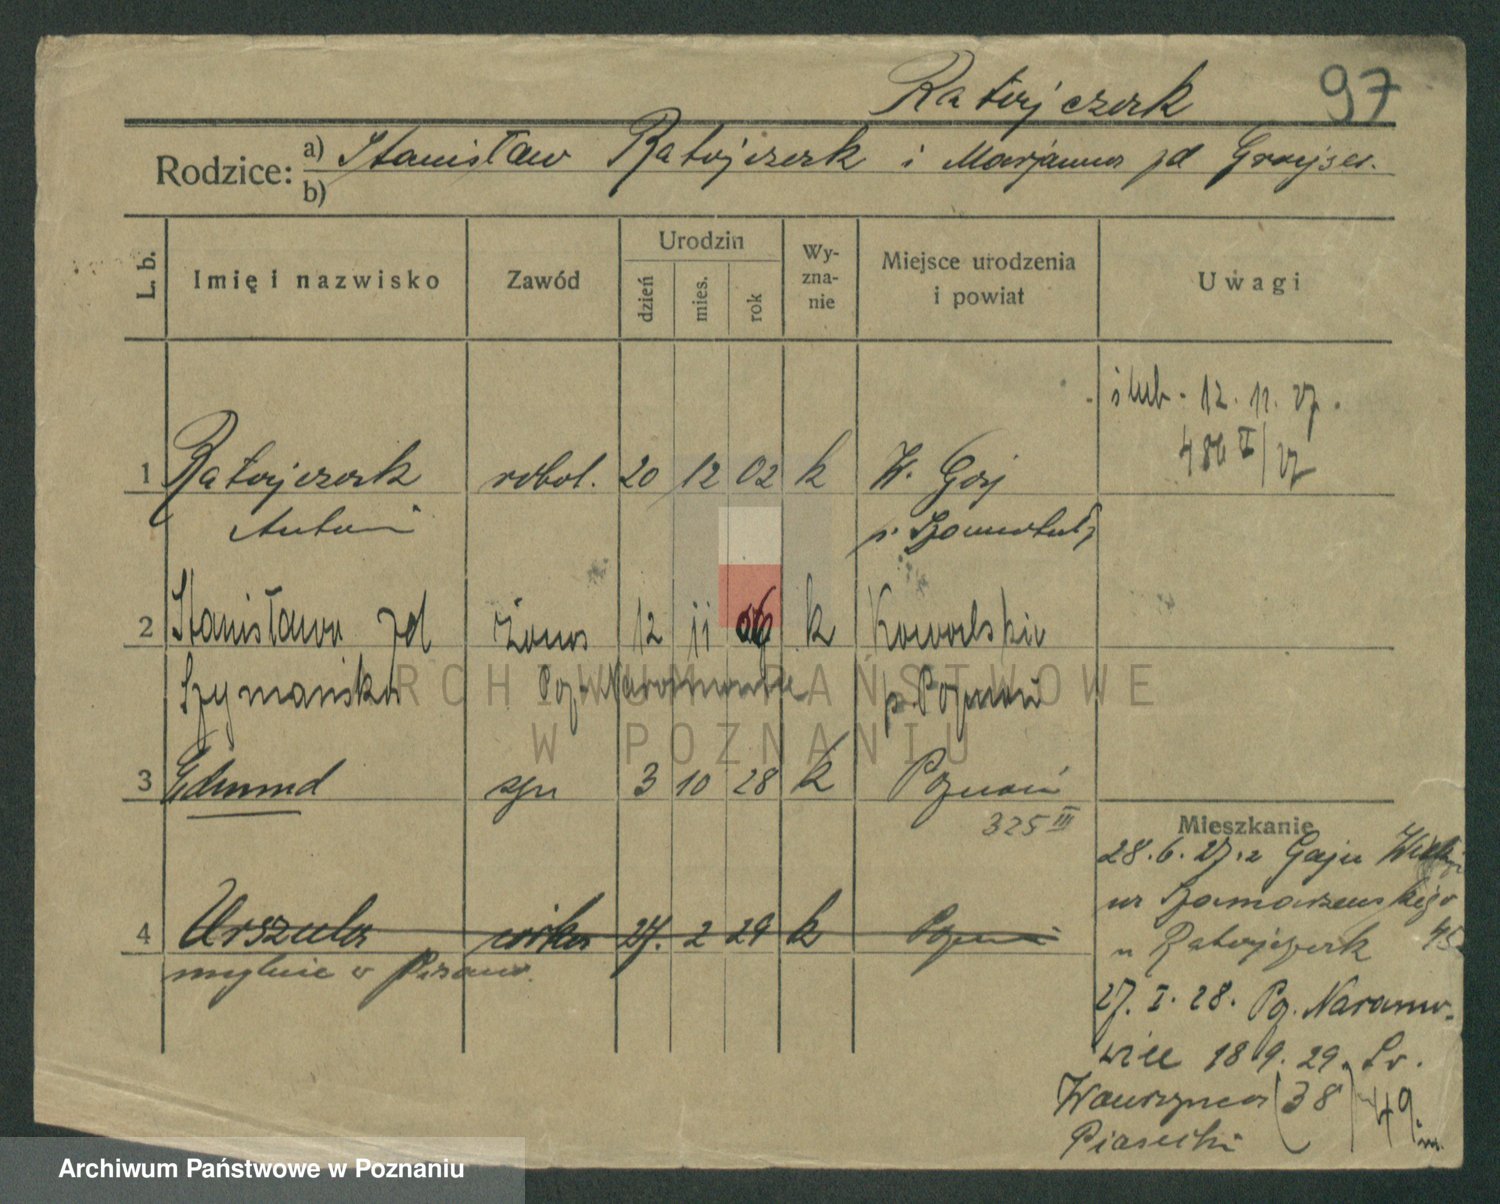 Ratajczak 97
Rodzice: a) Stanisław Ratajczak i Marjanna zd
b)
L. b. Imię i nazwisko Zawód Urodzin dzień mies. rok Wy-zna-nie Miejsce urodzenia i powiat Uwagi
ślub. 12. 11. 27.
486 II/27
1 Ratajczak robot. 20 12 02 k W. Gaj
Antoni p. Szamotuły
2 Stanisława zd żona 12 11 06 k Kowalskie
Szymańska p. Poznań
3 Edmund syn 3 10 28 k Poznań
325 III
Mieszkanie
28. 6. 27. z Gaju
ul Szamarzewskiego
u Ratajczak 45
4 Urszula córka 27. 2 29 k Poznań
mylnie w
27. I. 28. Pozn. Naramo-
wice 18 9. 29. Św.
Wawrzyńca (38) 49 m.
Piasecki
ARCHIWUM PAŃSTWOWE
W POZNANIU
Archiwum Państwowe w Poznaniu